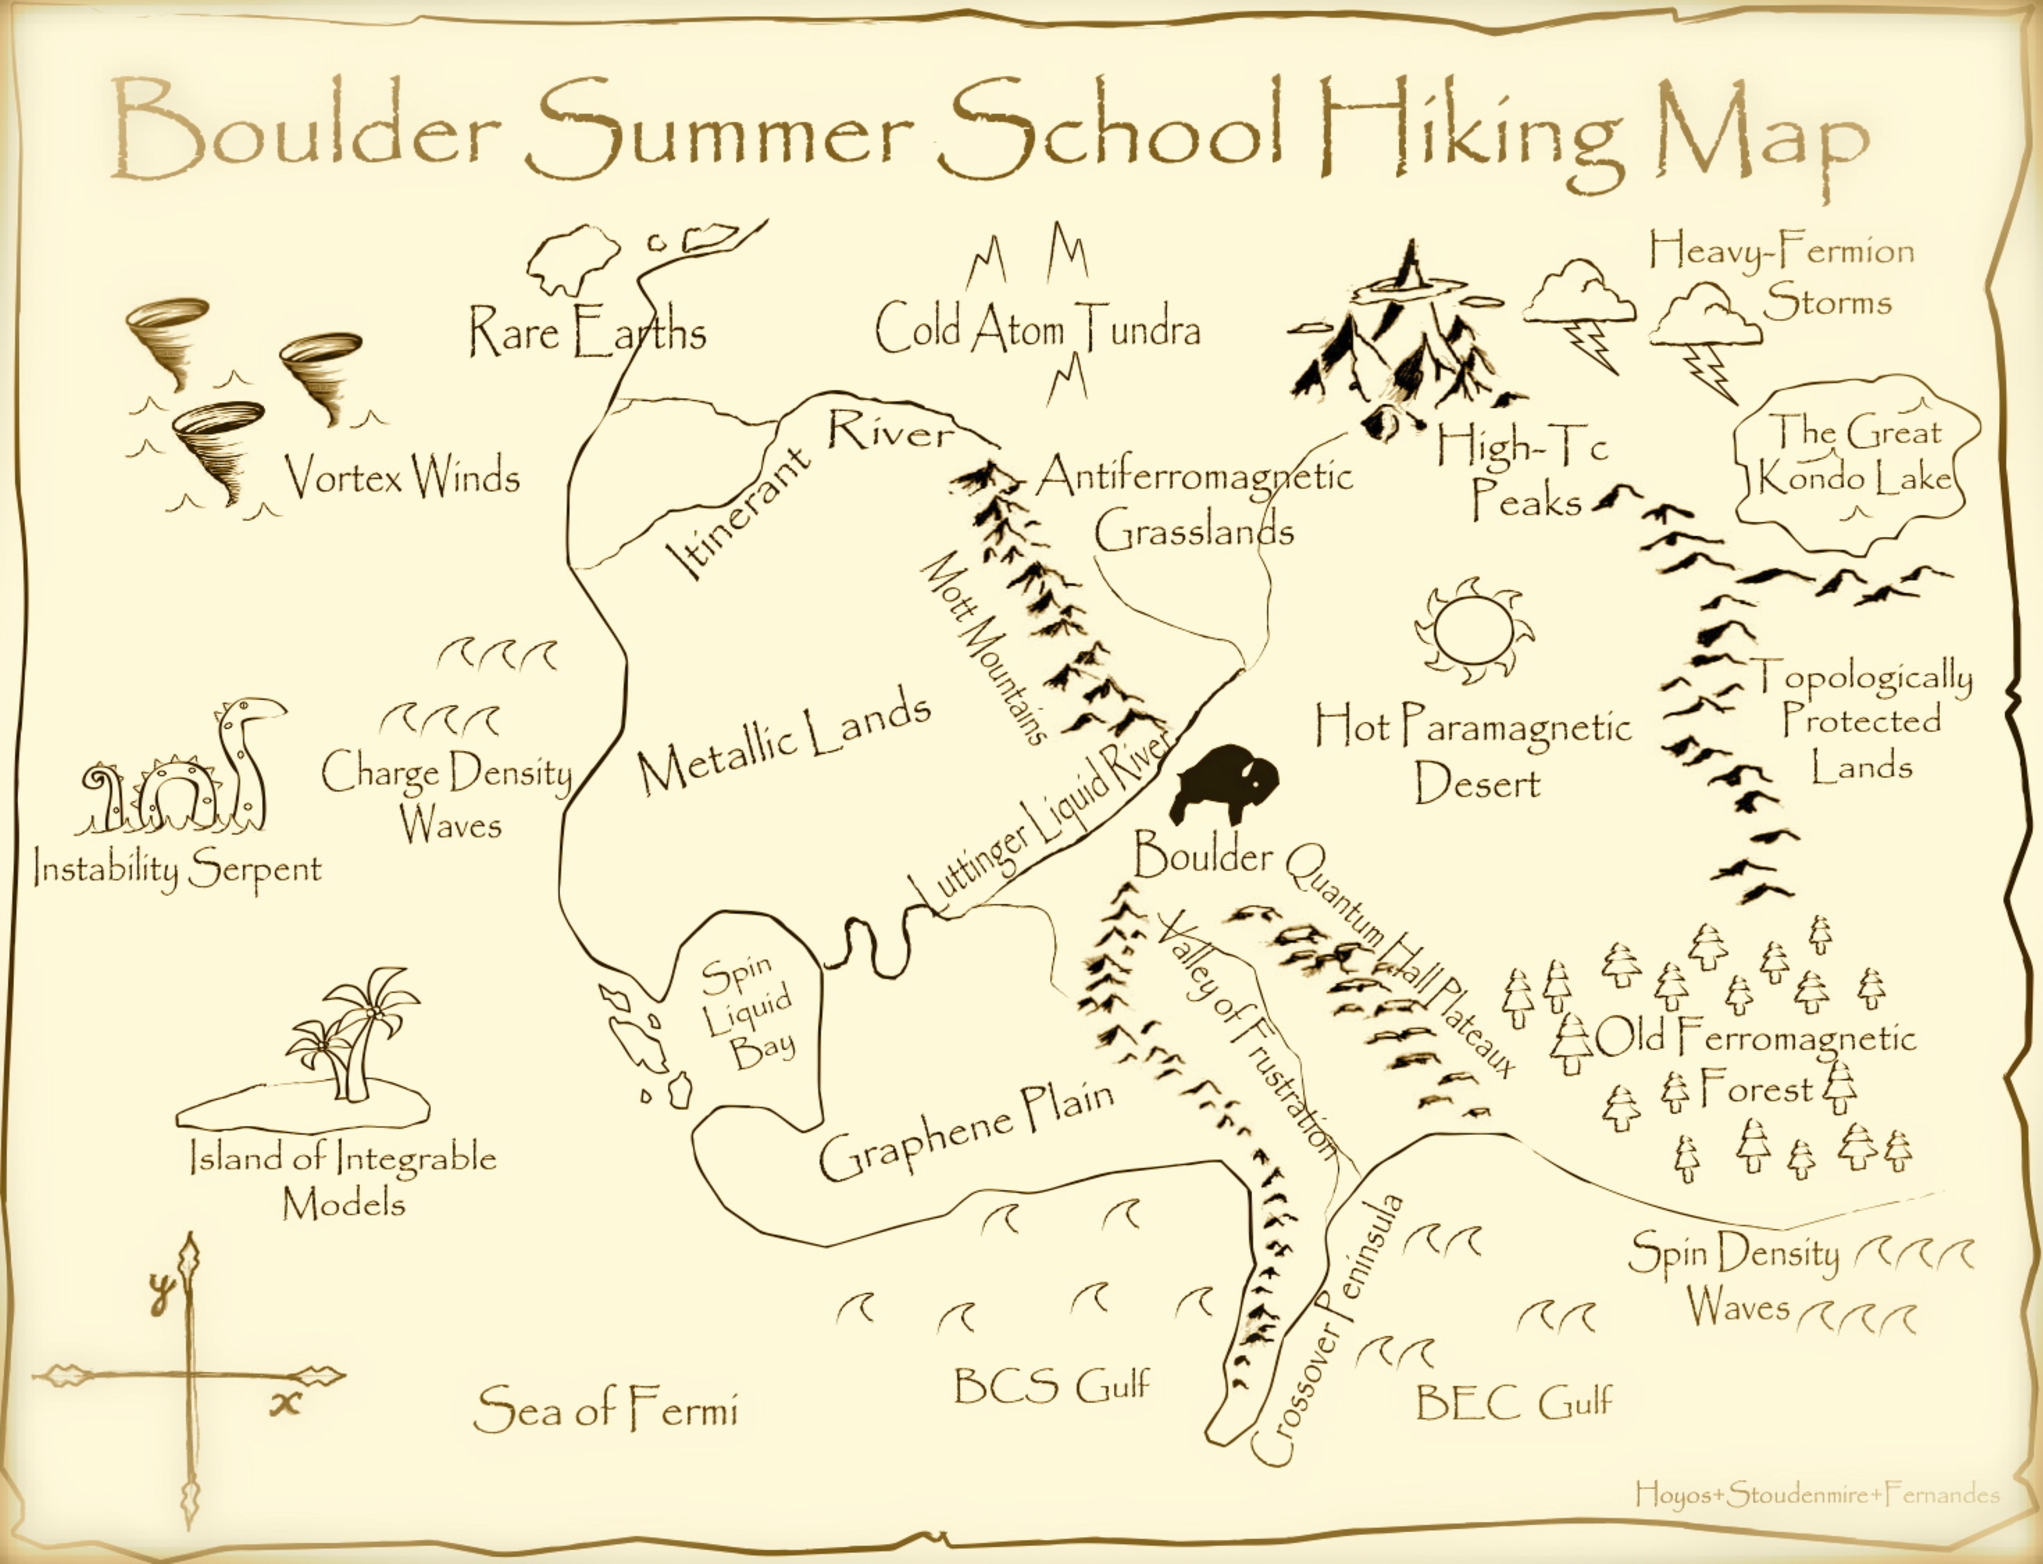 Boulder Summer School Hiking Map
Heavy-Fermion
Storms
Rare Earths
Cold Atom Tundra
The Great
Kondo Lake
Vortex Winds
Itinerant River
Antiferromagnetic
Grasslands
High-Tc
Peaks
Mott Mountains
Topologically
Protected
Lands
Hot Paramagnetic
Desert
Metallic Lands
Charge Density
Waves
Instability Serpent
Luttinger Liquid River
Boulder
Quantum Hall Plateaux
Valley of Frustration
Spin
Liquid
Bay
Old Ferromagnetic
Forest
Graphene Plain
Island of Integrable
Models
Crossover Peninsula
Spin Density
Waves
y
x
Sea of Fermi
BCS Gulf
BEC Gulf
Hoyos+Stoudenmire+Fernandes